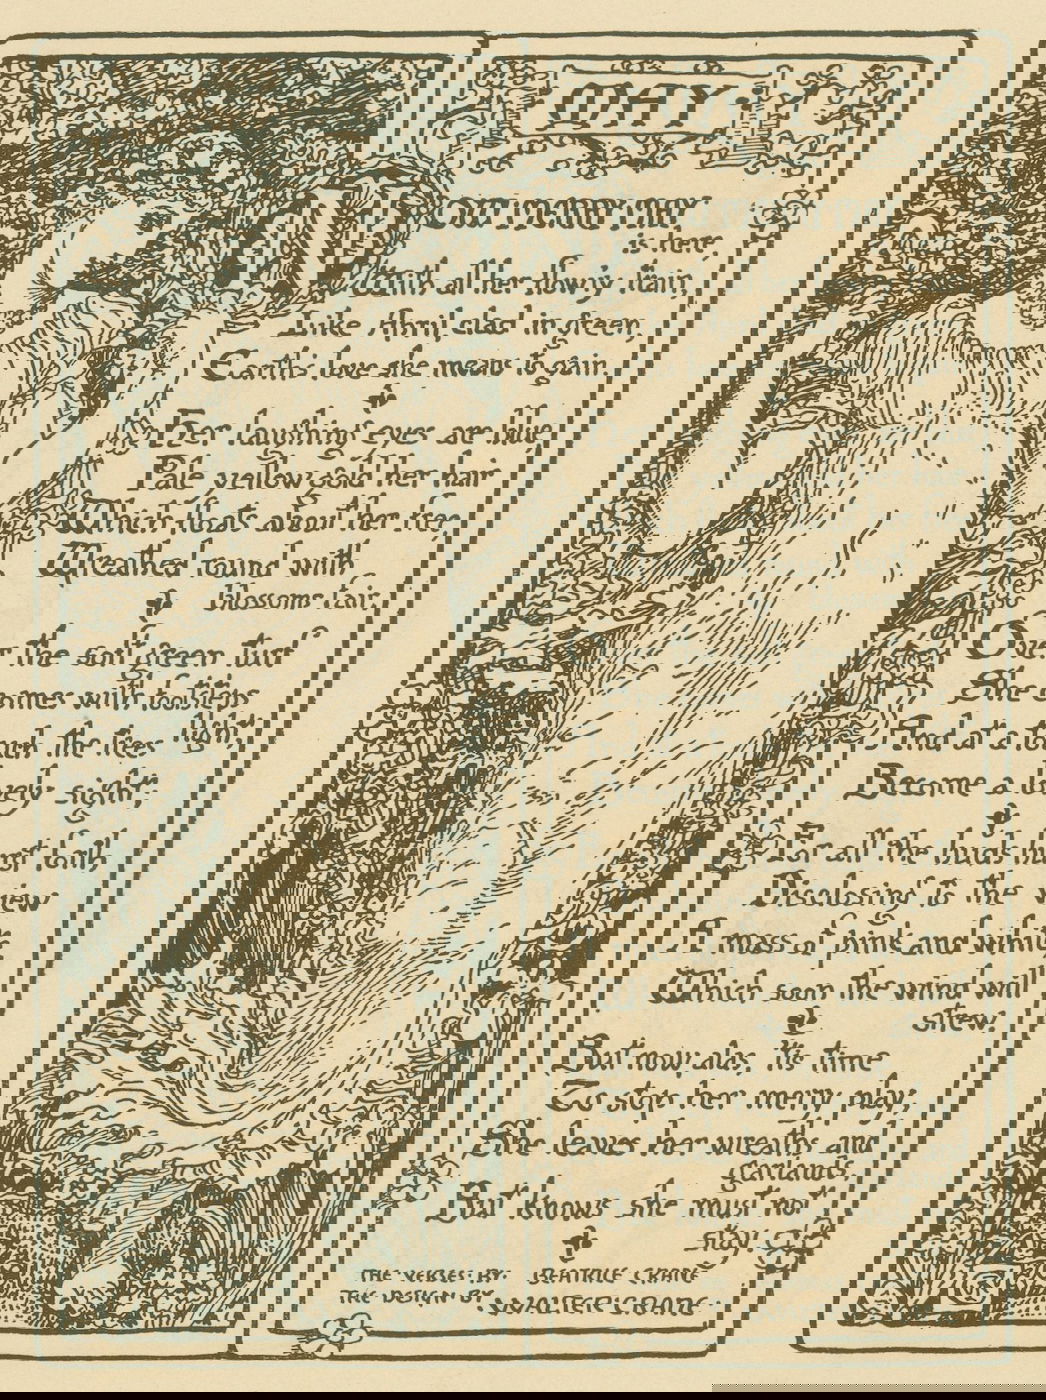 MAY
NOW MERRY MAY
is here,
With all her flow'ry train,
Like April, clad in green,
Earth's love she means to gain.
Her laughing eyes are blue,
Pale yellow gold her hair
Which floats about her free,
Wreathed round with
blossoms fair.
the soft green turf
comes with footsteps
light,
touch the trees
sight,
forth
view
Over
She
And at a touch
Become a
For all the buds
Disclosing to the
A mass of pink and white
Which soon the wind will
strew.
But now, alas, 'tis time
To stop her merry play,
She leaves her wreaths and
garlands,
But knows she must not
stay.
THE VERSES BY BEATRICE CRANE
THE DESIGN BY WALTER CRANE